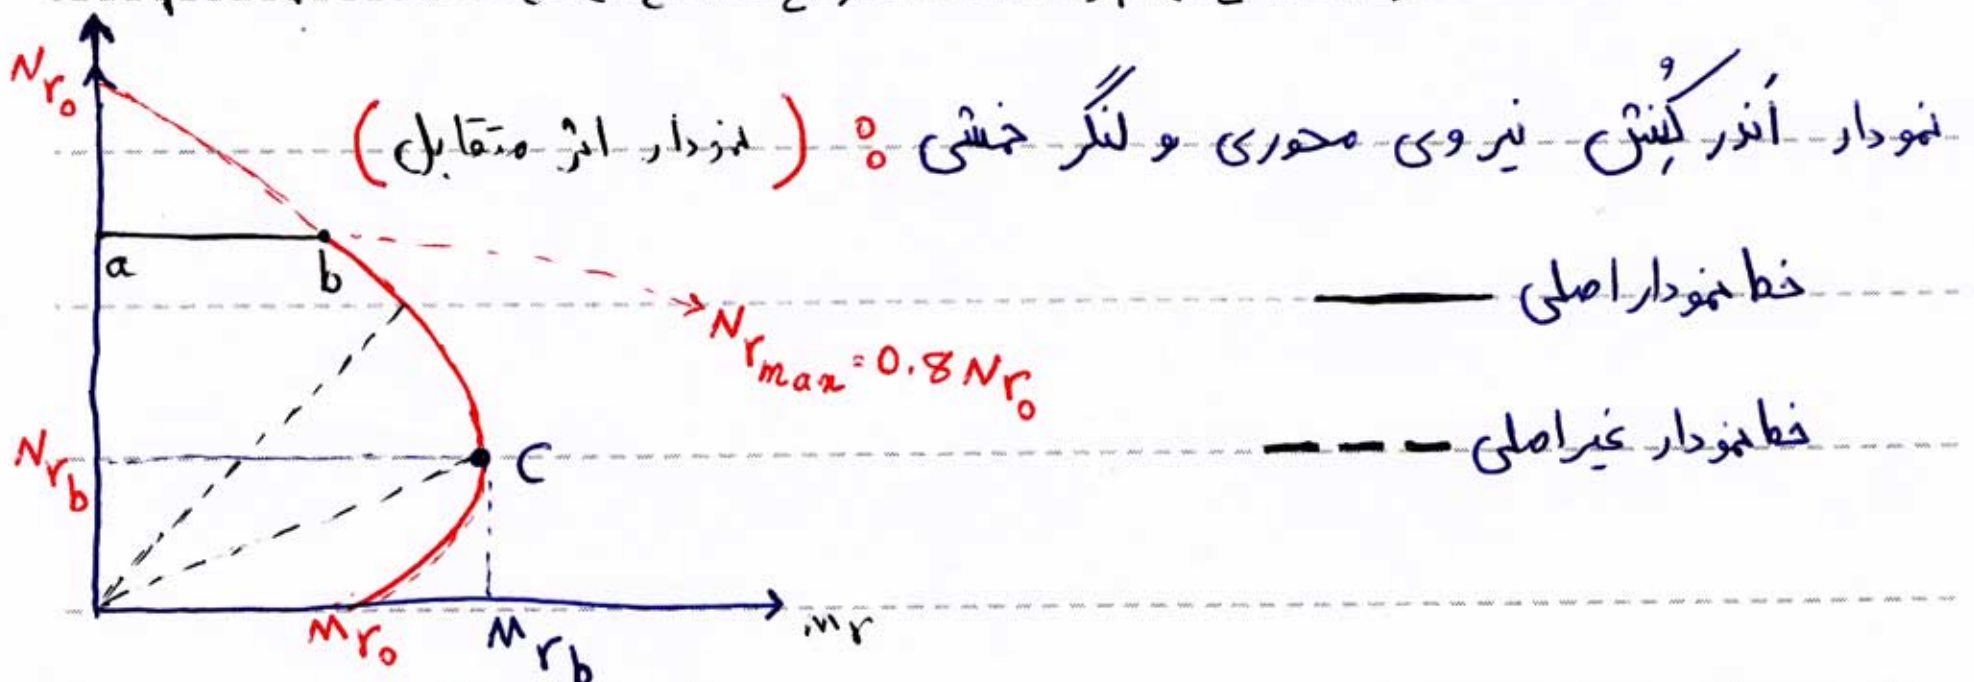 نمودار اَندرکُنِش نیروی محوری و لنگر خمشی : (نمودار اثر متقابل)
N_{r_0}
a
b
خط نمودار اصلی
N_{r_{max}} = 0.8 N_{r_0}
N_{r_b}
C
خط نمودار غیراصلی
M_{r_0}
M_{r_b}
M_r